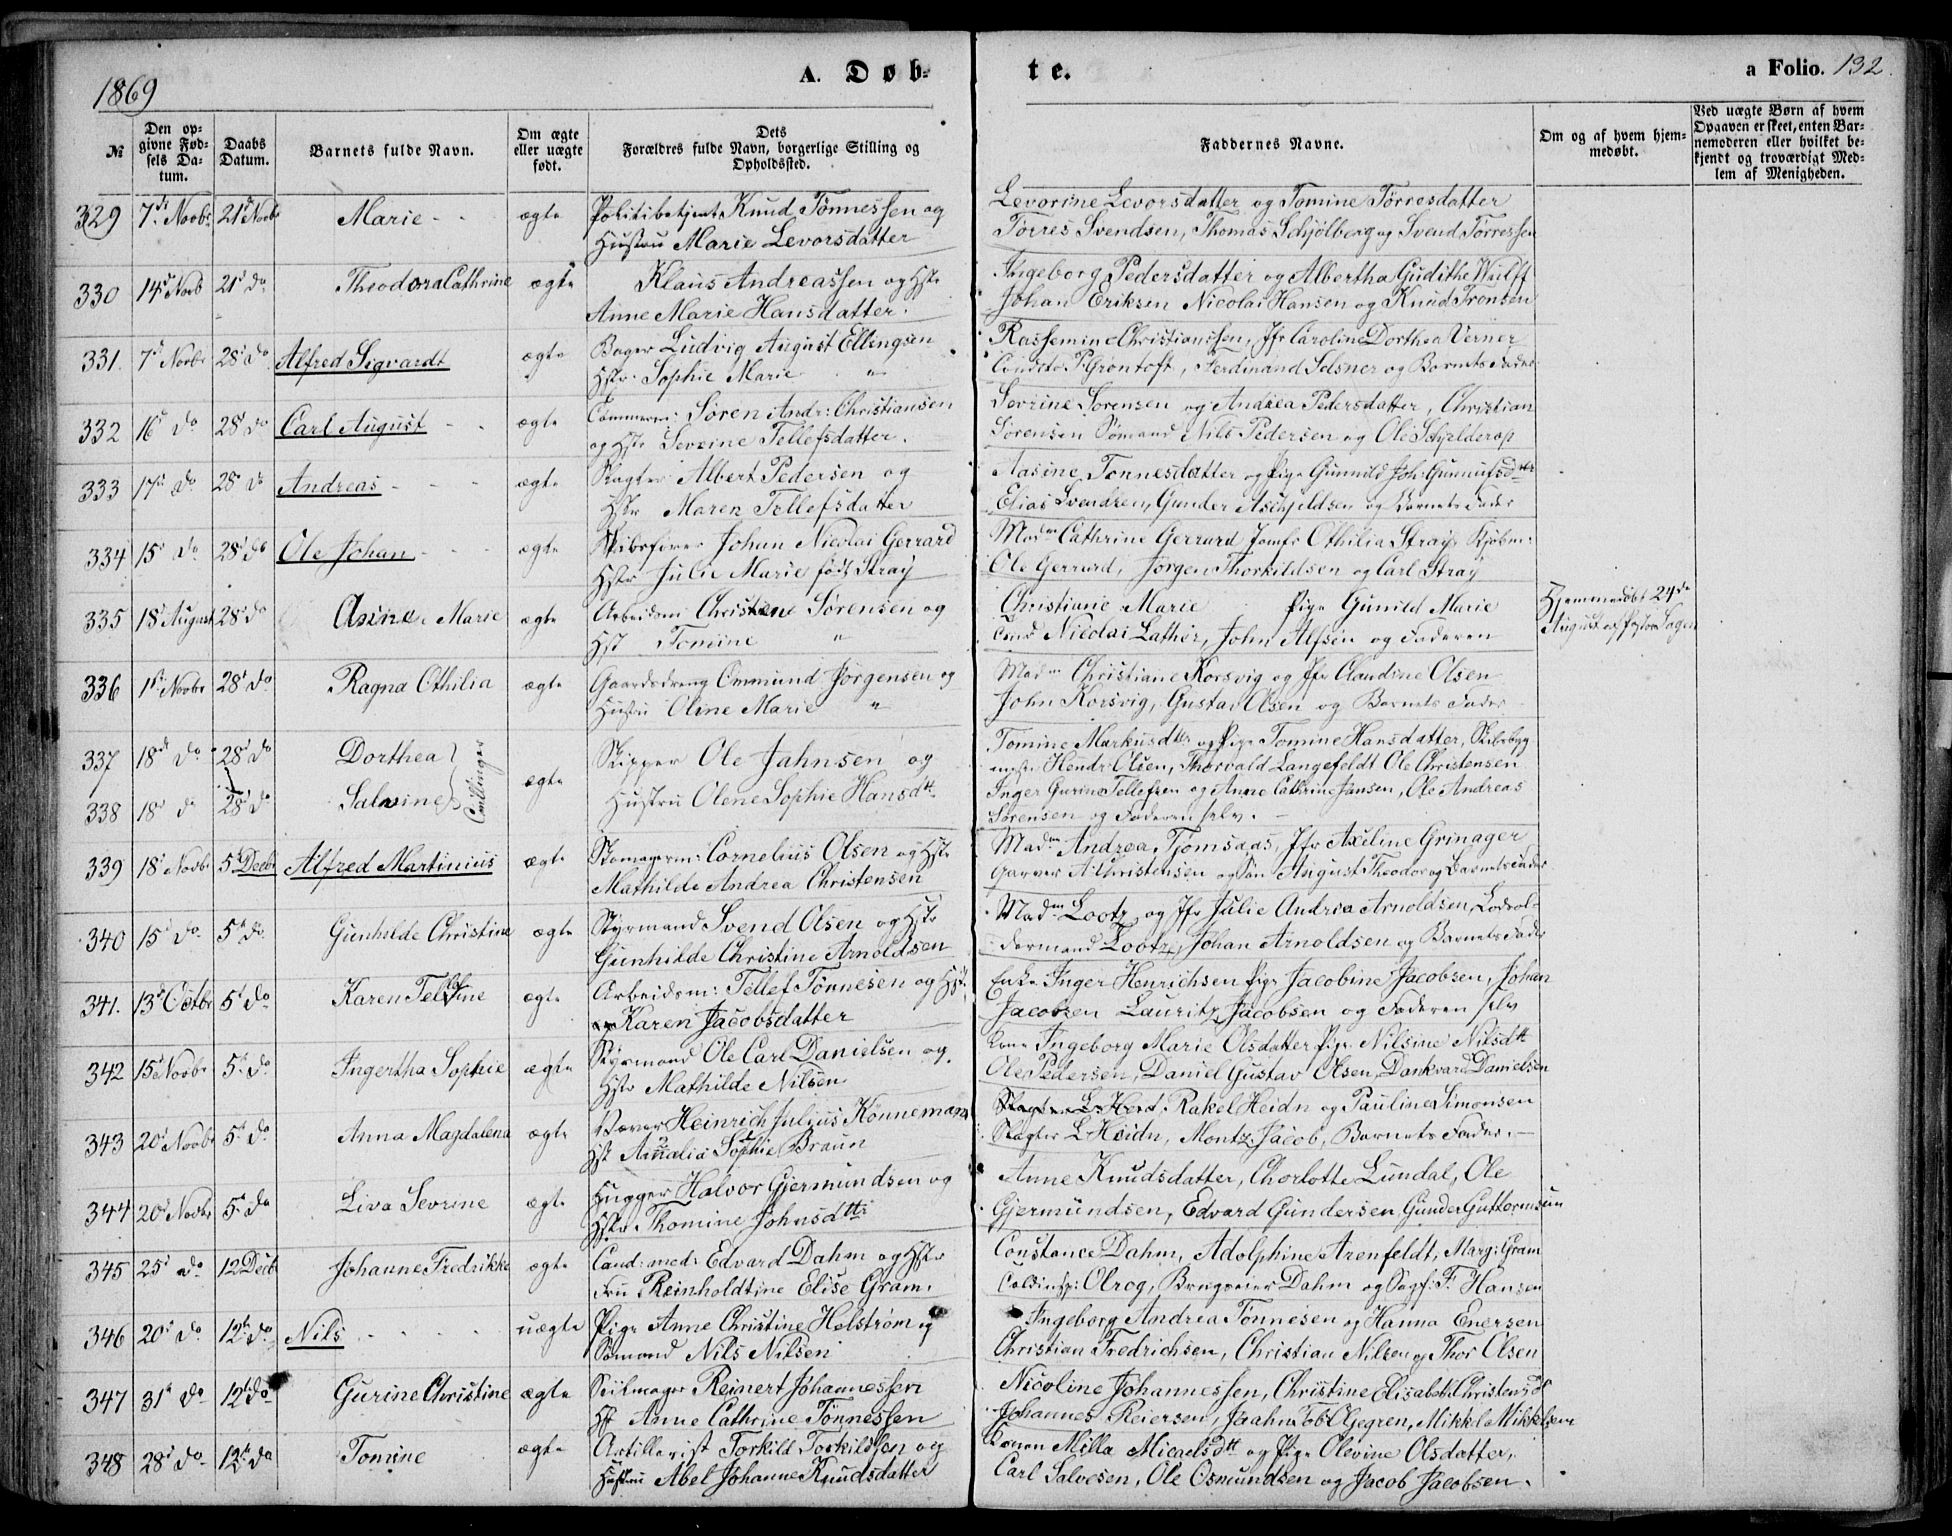 1869
A. Døb-
te.
a Folio. 132.
№
Den opgivne Fødsels Datum.
Daabs Datum.
Barnets fulde Navn.
Om ægte eller uægte født.
Dets Forældres fulde Navn, borgerlige Stilling og Opholdssted.
Faddernes Navne.
Om og af hvem hjemmedøbt.
Ved uægte Børn af hvem Opgaven er skeet, enten Barnemoderen eller hvilket bekjendt og troværdigt Medlem af Menigheden.
329 7de Novbr 21d Novbr Marie - - ægte Politibetjent Knud Tønnessen og
Hustru Marie Levorsdatter
Levorine Levorsdatter og Tomine Tørresdatter
Tørres Svendsen, Thomas Schjølberg og Svend Tørressen
330 14d Novb 21d do Theodora Cathrine ægte Klaus Andreassen og Hstr
Anne Marie Hansdatter.
Ingeborg Pedersdatter og Albertha Gudithe Wulff
Johan Eriksen Nicolai Hansen og Knud Tronsen
331. 7d Novbr 28d do Alfred Sigvardt ægte Bager Ludvig August Ellingsen
Hstr. Sophie Marie "
Rassemine Christianssen, Jfr Caroline Dorthea Verner
P Grøntoft, Ferdinand Selsner og Barnets Fader
332 16d do 28d do Carl August - - ægte Søren Andr: Christiansen
og Hstr Severine Tellefsdatter.
Sevrine Sørensen og Andrea Pedersdatter, Christian
Sørensen Sømand Nils Pedersen og Ole Schjelderop
333 17d do 28d do Andreas - - - ægte Slagter Albert Pedersen og
Hstr Maren Tellefsdatter
Aasine Tønnesdatter og Pige Gunnild Joh: Gunnufsdtr
Elias Svendsen, Gunder Aschjeldsen og Barnets Fader
334 15d do 28d do Ole Johan - - - ægte Skibsfører Johan Nicolai Gerrard
Hstr Julie Marie født Stray
Madm Cathrine Gerrard Jomfr Othilia Stray, Kjøbm:
Ole Gerrard, Jørgen Thorkildsen og Carl Stray
335 18d August 28d do Asine Marie ægte Arbeidsm: Christen Sørensen og
Hst Tomine "
Christiane Marie Pige Gunild Marie
Nicolai Lather, John Alfsen og Faderen
Hjemmedøbt 24de
August af Pastor Sagen
336 1ste Novbr 28d do Ragna Othilia ægte Gaardsdreng Ommund Jørgensen og
Hustru Oline Marie "
Madm Christiane Korsvig og Jfr Claudine Olsen
John Korsvig, Gustav Olsen og Barnets Fader
337 18de do 28d do Dorthea
338 18d do 28d do Salvine
Tvillinger ægte Skipper Ole Jahnsen og
Hustru Olene Sophie Hansdtt
Tomine Markusdtr og Pige Tomine Hansdatter, Skibsbyg
mestr Hendr Olsen, Thorvald Langefeldt Ole Christensen
Inger Gurine Tellefsen og Anne Cathrine Jansen, Ole Andreas
Sørensen og Faderen selv.
339 18d Novbr 5d Decbr Alfred Martinius ægte Skomagerm: Cornelius Olsen og Hstr
Mathilde Andrea Christensen
Madm Andrea Tjomsaas, Jfr Axeline Grinager
Garver A Christensen og Søn August Theodor og Barnets Fader
340 15d do 5d do Gunhilde Christine ægte Styrmand Svend Olsen og Hstr
Gunhilde Christine Arnoldsen
Madm Lootz og Jfr Julie Andrea Arnoldsen, Lodsol-
dermand Lootz, Johan Arnoldsen og Barnets Fader
341. 13d Octbr 5d do Karen Tellefine ægte Arbeidsm: Tellef Tønnesen og Hst.
Karen Jacobsdatter
Enke Inger Henrichsen Pige Jacobine Jacobsen, Johan
Jacobsen Lauritz Jacobsen og Faderen selv
342 15d Novbr 5d do Ingertha Sophie ægte Styrmand Ole Carl Danielsen og
Hstr Mathilde Nilsen
Kone Ingeborg Marie Olsdatter Pige Nilsine Nilsdtt
Ole Pedersen, Daniel Gustav Olsen, Dankvard Danielsen
343 20d Novbr 5d do Anna Magdalena ægte Heinrich Julius Könnemann
Hst Amalia Sophie Braun
Slagter L. Heid. Rakel Heidn og Pauline Simonsen
Slagter L Heidn, Montz Jacob, Barnets Fader.
344 20d Novbr 5d do Liva Sevrine ægte Hugger Halvor Gjermundsen og
Hstr Thomine Johnsdtt
Anne Knudsdatter, Chorlotte Lundal, Ole
Gjermundsen, Edvard Gundersen Gunder Guttormsen
345 25d do 12 Decb Johanne Fredrikke ægte Cand: med: Edvard Dahm og Hstr
Fru Reinholdtine Elise Gram.
Constance Dahm, Adolphine Arenfeldt, Marg: Gram
Toldinsp: Olrog, Brugseier Dahm og Sagf: F. Hansen
346 20d do 12te do Nils - - - - uægte Pige Anne Christine Helstrøm og
Sømand Nils Nilsen
Ingeborg Andrea Tønnesen og Hanna Enersen
Christian Fredrichsen, Christian Nilsen og Thor Olsen
347 31te do 12te do Gurine Christine ægte Seilmager Reinert Johannessen
Hst Anne Cathrine Tønnessen
Nicoline Johannessen, Christine Elisabeth Christensdt
Johannes Reiersen, Jaahn Tob: Ogegren, Mikkel Mikkelsen
348 28d do 12te do Tomine ægte Artillerist Torkild Torkildsen og
Hustru Abel Johanne Knudsdatter
Konen Milla Micaelsdtt og Pige Olevine Olsdatter,
Carl Salvesen, Ole Osmundsen og Jacob Jacobsen.